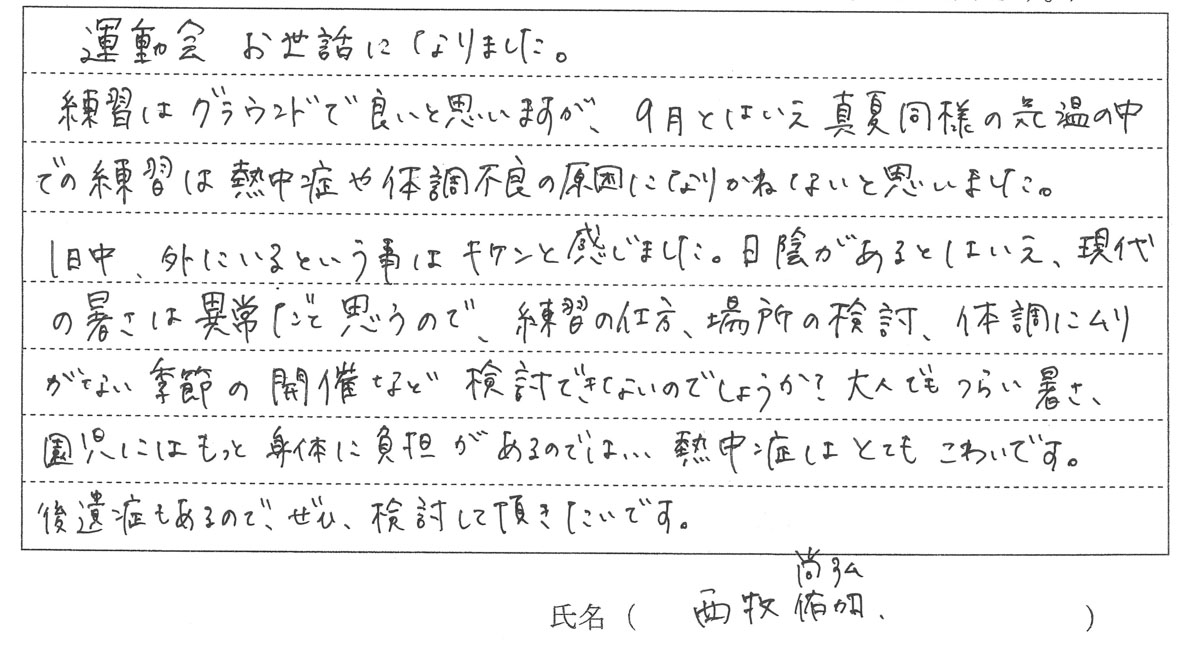 運動会 お世話になりました。
練習はグラウンドで良いと思いますが、9月とはいえ真夏同様の気温の中
での練習は熱中症や体調不良の原因になりかねないと思いました。
1日中、外にいるという事はキケンと感じました。日陰があるとはいえ、現代
の暑さは異常だと思うので、練習の仕方、場所の検討、体調にムリ
がない季節の開催など検討できないのでしょうか？大人でもつらい暑さ、
園児にはもっと身体に負担があるのでは… 熱中症はとてもこわいです。
後遺症もあるので、ぜひ、検討して頂きたいです。
尚弘
氏名（ 西牧 佑加、 ）